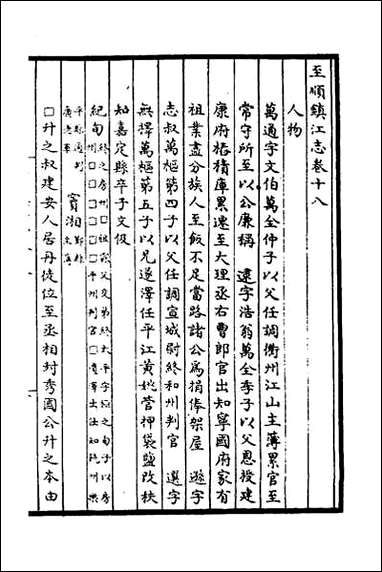 至順鎮江志卷十八
人物
萬適字文伯萬全仲子以父任調衢州江山主薄累官至
常守所至以公廉稱　遑字浩翁萬全季子以父恩授建
康府榙積庫累速至大理丞右曹郎官出知寧國府家有
祖業盡分族人至飯不足當路諸公為捐俸架屋　遜字
志叔萬樞第四子以父任調宣城尉終和州判官　選字
無擇萬樞第五子以兄遂澤任平江黃姚營押袋鹽改秩
知嘉定縣卒子文伋
紀甸
竇湘
□升之叔建安人居丹徒位至丞相封秀國公升之本由